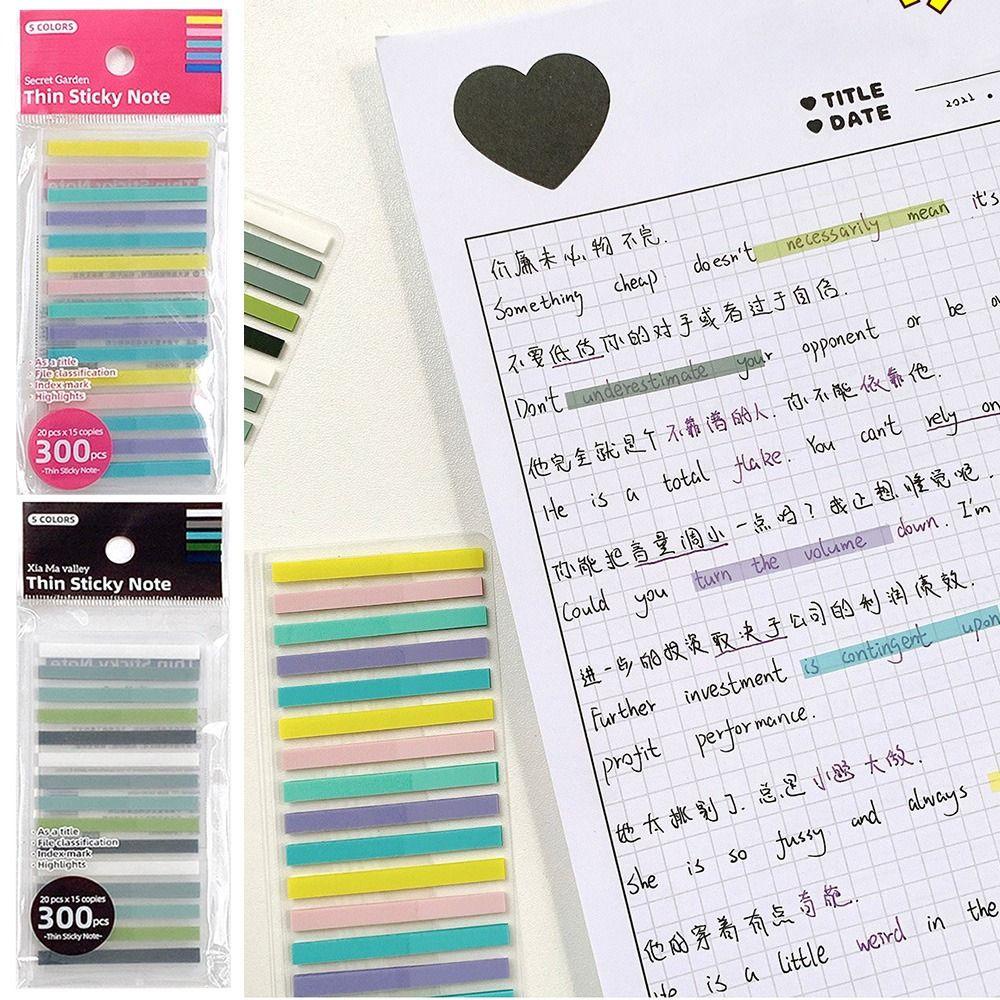 5 COLORS
Secret Garden
Thin Sticky Note
· As a title
· File classification
· Index mark
· Highlights
20 pcs x 15 copies
300pcs
-Thin Sticky Note-
5 COLORS
Xia Ma valley
Thin Sticky Note
· As a title
· File classification
· Index mark
· Highlights
20 pcs x 15 copies
300pcs
-Thin Sticky Note-
TITLE
DATE
2021 .
价廉未必物不完.
Something cheap doesn't necessarily mean it's
不要低估你的对手或者过于自信.
Don't underestimate your opponent or be
他完全就是个不靠谱的人. 你不能依靠他.
He is a total flake. You can't rely on
你能把音量调小一点吗? 我正想睡觉呢.
Could you turn the volume down. I'm
进一步的投资取决于公司的利润绩效.
Further investment is contingent upon
profit performance.
她太挑剔了. 总是小题大做.
She is so fussy and always
他的穿着有点奇葩.
He is a little weird in the